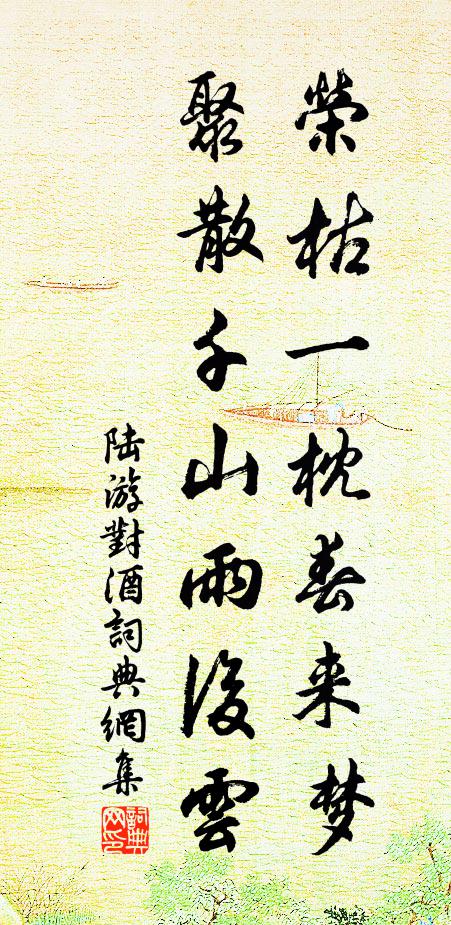 榮枯一枕春来梦
聚散千山雨後雲
陆游對酒詞典網集
詞典網印